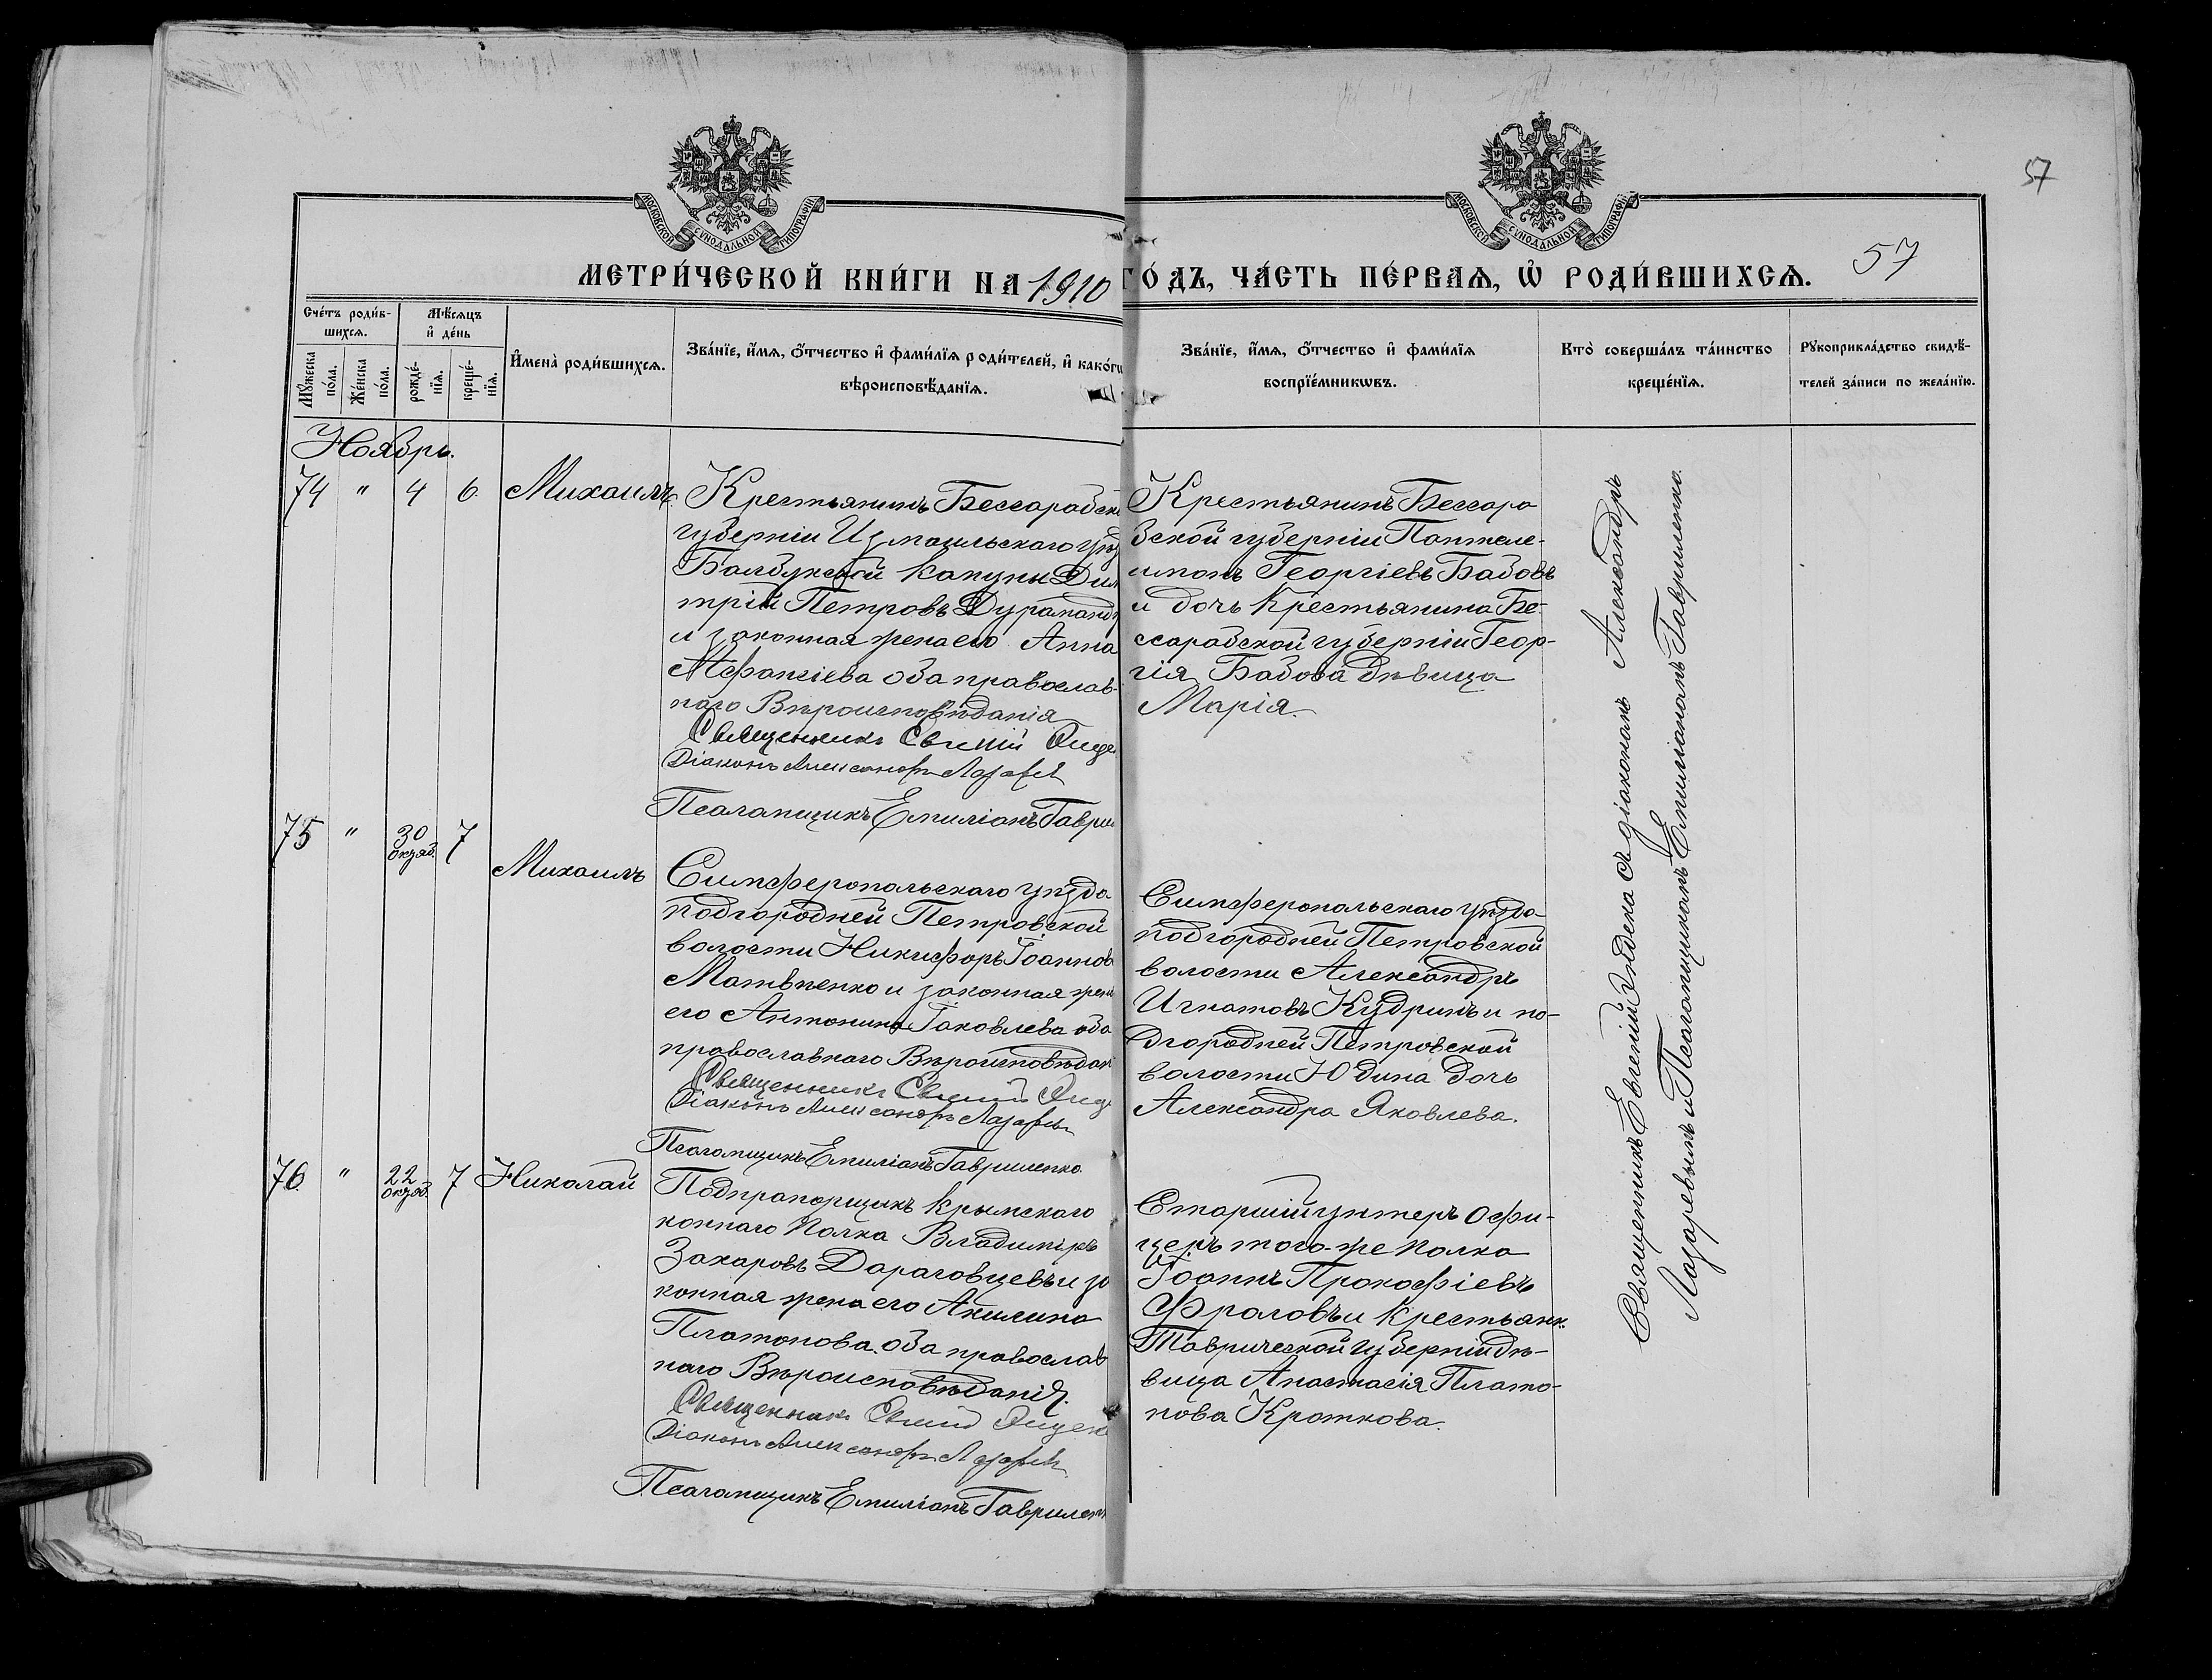 57
МОСКОВСКОЙ СѴНОДАЛЬНОЙ ТИПОГРАФІИ
МОСКОВСКОЙ СѴНОДАЛЬНОЙ ТИПОГРАФІИ
МЕТРИ́ЧЕСКОЙ КНИ́ГИ НА 1910 ГО́ДЪ, ЧА́СТЬ ПЕ́РВАѦ, Ѡ҆ РОДИ́ВШИХСѦ.
57
Сче́тъ роди́в-
шихсѧ.
Мꙋ́жеска
по́ла.
Же́нска
по́ла.
Мѣ́сѧцъ
и҆ де́нь
рожде́-
нїѧ.
креще́-
нїѧ.
И҆мена̀ роди́вшихсѧ.
Зва́нїе, и҆́мѧ, ѻ҆́тчество и҆ фами́лїѧ роди́телей, и҆ како́гw
вѣроисповѣ́данїѧ.
Зва́нїе, и҆́мѧ, ѻ҆́тчество и҆ фами́лїѧ
воспрїе́мникѡвъ.
Кто̀ соверша́лъ та́инство
креще́нїѧ.
Рꙋкоприкла́дство свидѣ́-
телей за́писи по жела́нїю.
Ноябрь.
74 " 4 6. Михаилъ
Крестьянинъ Бессарабск
губерніи Измаильскаго уѣз
Балбукской Капуны Дим
трій Петровъ
и законная жена его Анна
оба православ-
наго Вѣроисповѣданія
Священникъ Евгеній
Діаконъ Александръ Лазарев
Псаломщикъ Емиліанъ Гаври
Крестьянинъ Бессара
бской губерніи Пантеле-
имонъ Георгіевъ Бабовъ
и дочь Крестьянина Бе-
ссарабской губерніи Геор-
гія Бабова дѣвица
Марія.
75 " 30 октяб. 7 Михаилъ
Симферопольскаго уѣзда
подгородней Петровской
волости Никифоръ Іоаннов
Матвѣенко и законная жена
его Антонина Іаковлева оба
православнаго Вѣроисповѣдан
Священникъ Евгеній
Діаконъ Александръ Лазарев
Псаломщикъ Емиліанъ Гавриленко
Симферопольскаго уѣзда
подгородней Петровской
волости Александръ
Игнатовъ Кудринъ и по-
дгородней Петровской
волости Юдина дочь
Александра Яковлева.
76 " 22 октяб. 7 Николай
Подпрапорщикъ Крымскаго
коннаго Полка Владиміръ
Захаровъ Дараговцевъ и за
конная жена его Акилина
Платонова. оба православ
наго Вѣроисповѣданія.
Священникъ Евгеній
Діаконъ Александръ Лазарев
Псаломщикъ Емиліанъ Гавриленк
Старшій унтеръ офи-
церъ того-же Полка
Іоаннъ Прокофіевъ
Фроловъ и Крестьянк.
Таврической губерніи дѣ-
вица Анастасія Плато-
нова Кроткова.
Священникъ Евгеній съ діакономъ Александръ
Лазаревымъ и Псаломщикомъ Емиліаномъ Гавриленко.